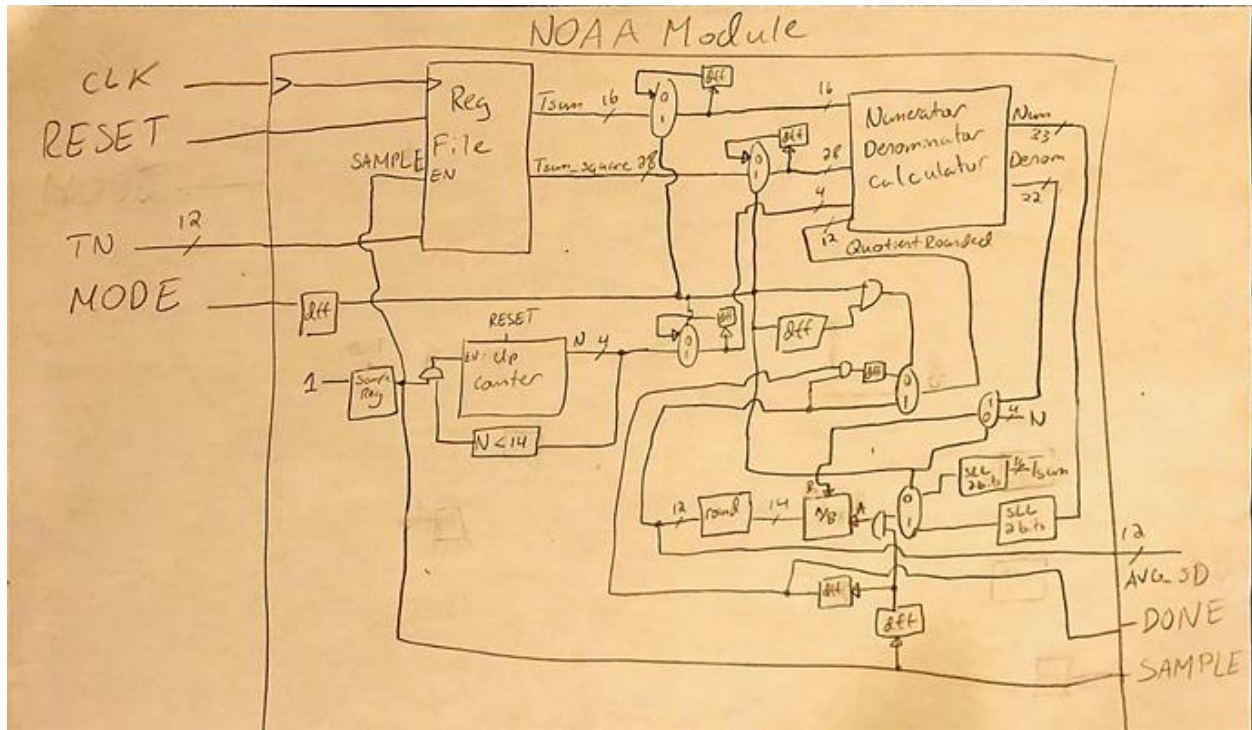 NOAA Module
CLK
RESET
TN
12
MODE
Reg
File
SAMPLE
EN
Tsum 16
Tsum_square 28
0
1
dff
0
1
dff
16
28
4
12
Numerator
Denominator
Calculator
Num
33
Denom
22
Quotient Rounded
dff
RESET
EN
Up
Counter
N 4
0
1
dff
dff
1
Sample
Reg
N<14
dff
0
1
1
0
4
N
SLL
2 bits
16
Tsum
0
1
SLL
2 bits
12
round
14
B
A/B
A
dff
dff
12
AVG_SD
DONE
SAMPLE